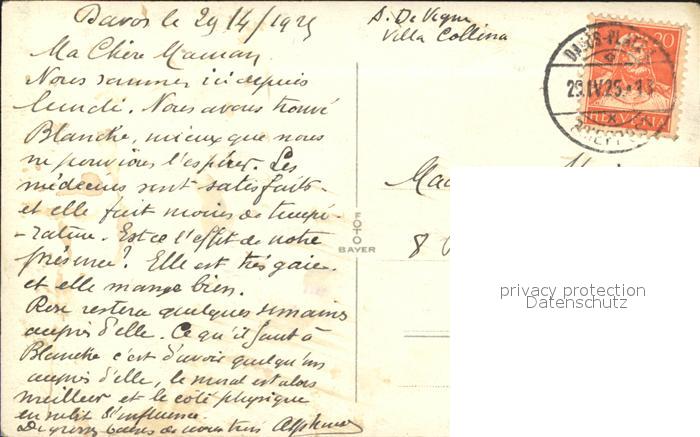 Davos le 29/4/1925
Ma Chère Maman
Nous sommes ici depuis
lundi. Nous avons trouvé
Blanche, mieux que nous
ne pouvions l'espérer. Les
médecins sont satisfaits
et elle fait moins de tempé-
-rature. Est ce l'effet de notre
présence? Elle est très gaie
et elle mange bien.
Rose restera quelques semaines
auprès d'elle. Ce qu'il faut à
Blanche c'est d'avoir quelqu'un
auprès d'elle, le moral est alors
meilleur et le côté physique
en subit l'influence.
De gros baisers de nous trois Alphonse
A. De Vegne
Villa Collina
DAVOS-PLATZ
29.IV.25
20
HELVETIA
FOTO
BAYER
Mad
8
privacy protection
Datenschutz